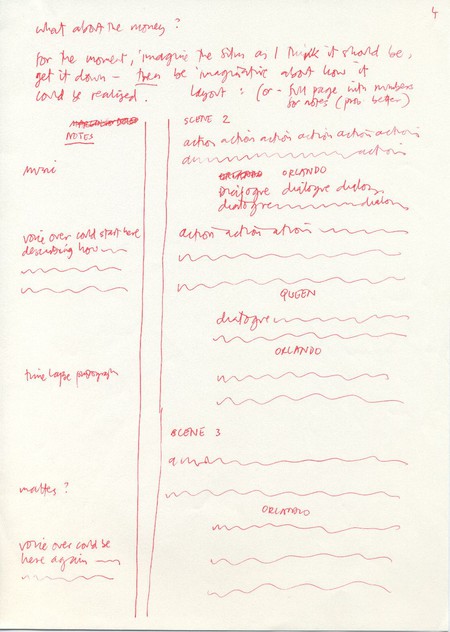 4
what about the money?
For the moment, imagine the film as I think it should be,
get it down - then be imaginative about how it
could be realised.
Layout: (or - full page with numbers
for notes (prob better)
NOTES
SCENE 2
action action action action action action
action
music
ORLANDO
Dialogue dialogue dialog
dialogue dialog
voice over could start here
describing how
action action action
QUEEN
dialogue
ORLANDO
time lapse photograph
SCENE 3
mattes?
ORLANDO
voice over could be
here again